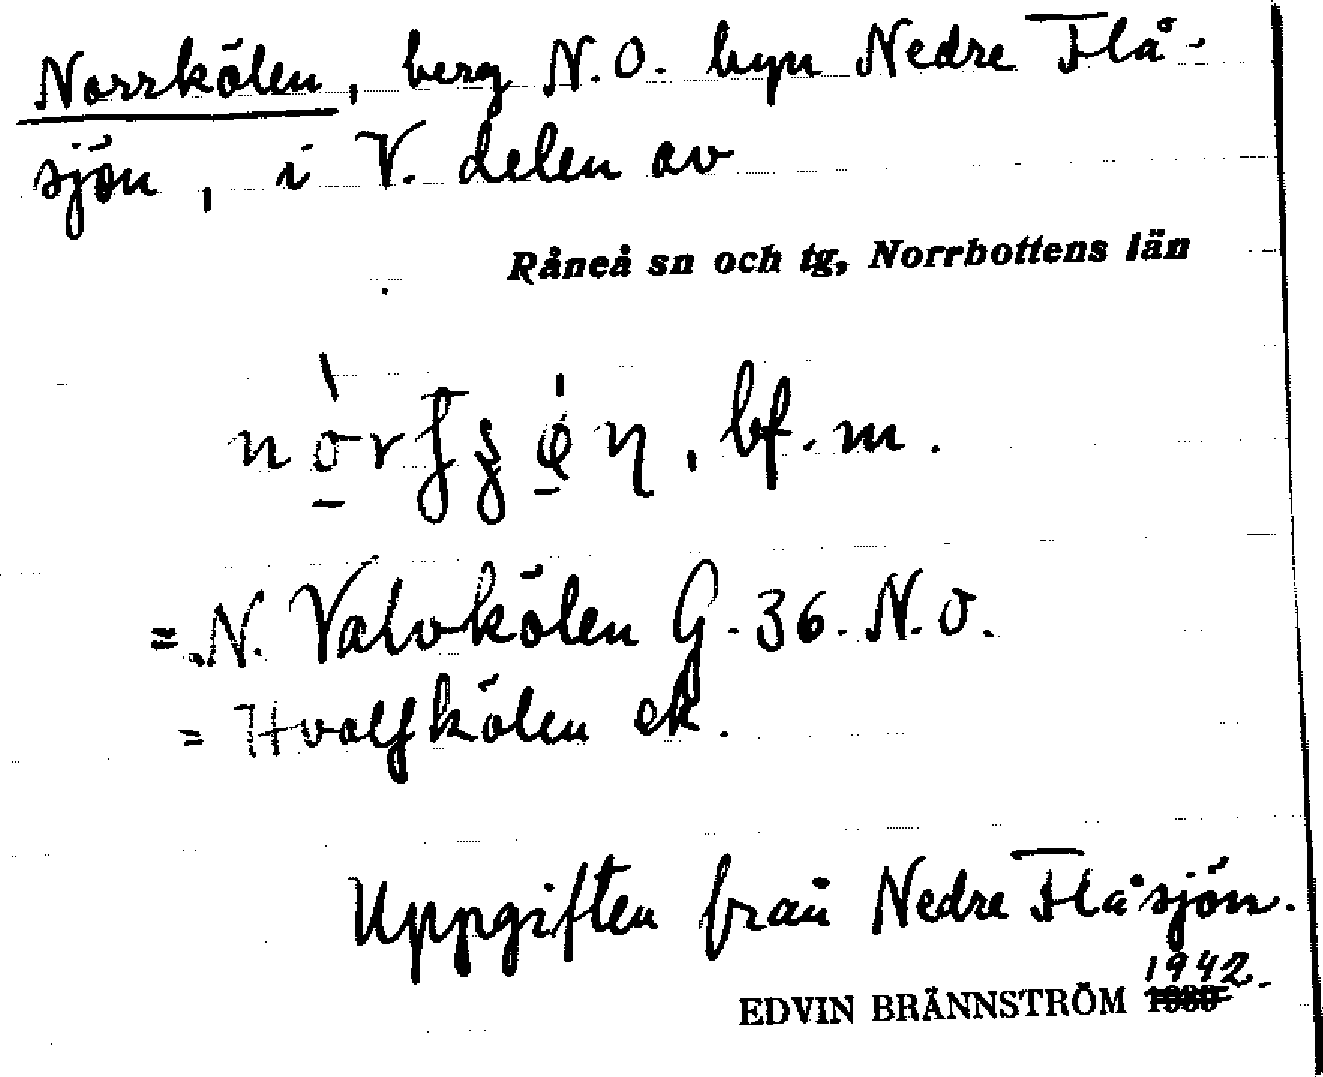 Norrkölen, berg N.O. byn Nedre Flå-
sjön, i V. delen av
Råneå sn och tg, Norrbottens län
bf. m.
= N. Valvkölen G. 36. N.O.
= Hvalfkölen ek.
Uppgiften från Nedre Flåsjön.
1942
EDVIN BRÄNNSTRÖM